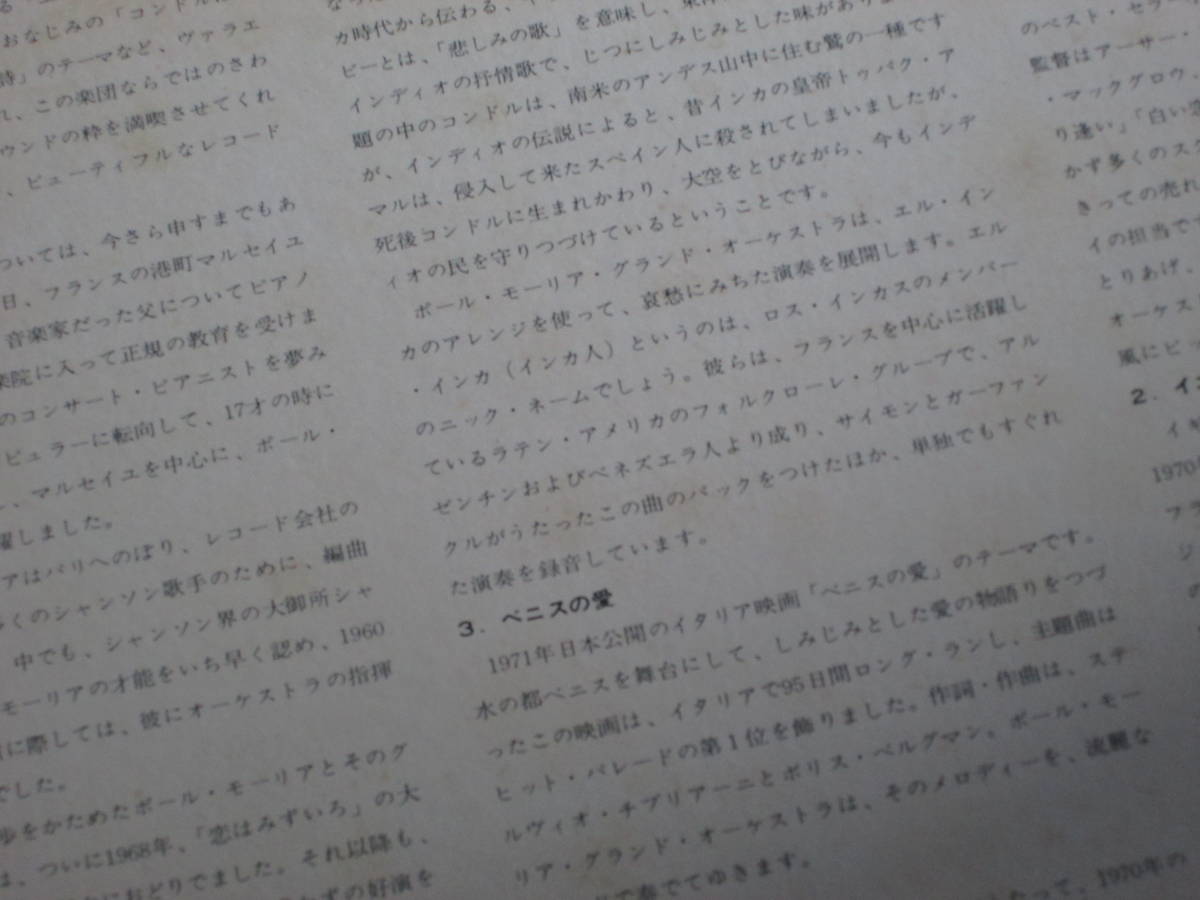 おなじみの「コンドルは
詩」のテーマなど、ヴァラエ
れ、この楽団ならではのさわ
ウンドの粋を満喫させてくれ
、ビューティフルなレコード
ついては、今さら申すまでもあ
日、フランスの港町マルセイユ
音楽家だった父についてピアノ
楽院に入って正規の教育を受けま
のコンサート・ピアニストを夢み
ピュラーに転向して、17才の時に
、マルセイユを中心に、ポール・
躍しました。
アはパリへのぼり、レコード会社の
くのシャンソン歌手のために、編曲
中でも、シャンソン界の大御所シャ
モーリアの才能をいち早く認め、1960
に際しては、彼にオーケストラの指揮
でした。
歩をかためたポール・モーリアとそのグ
は、ついに1968年、「恋はみずいろ」の大
におどりでました。それ以降も、
かずの好演を
カ時代から伝わる、
ビーとは、「悲しみの歌」を意味し、
インディオの抒情歌で、じつにしみじみとした味があり
題の中のコンドルは、南米のアンデス山中に住む鷲の一種です
が、インディオの伝説によると、昔インカの皇帝トゥパク・ア
マルは、侵入して来たスペイン人に殺されてしまいましたが、
死後コンドルに生まれかわり、大空をとびながら、今もインデ
ィオの民を守りつづけているということです。
ポール・モーリア・グランド・オーケストラは、エル・イン
カのアレンジを使って、哀愁にみちた演奏を展開します。エル
・インカ（インカ人）というのは、ロス・インカスのメンバー
のニック・ネームでしょう。彼らは、フランスを中心に活躍し
ているラテン・アメリカのフォルクローレ・グループで、アル
ゼンチンおよびベネズエラ人より成り、サイモンとガーファン
クルがうたったこの曲のバックをつけたほか、単独でもすぐれ
た演奏を録音しています。
3．ベニスの愛
1971年日本公開のイタリア映画「ベニスの愛」のテーマです。
水の都ベニスを舞台にして、しみじみとした愛の物語りをつづ
ったこの映画は、イタリアで95日間ロング・ランし、主題曲は
ヒット・パレードの第1位を飾りました。作詞・作曲は、ステ
ルヴィオ・チプリアーニとボリス・ベルグマン。ポール・モー
リア・グランド・オーケストラは、そのメロディーを、流麗な
で奏でてゆきます。
たって、1970年の
のベスト・セラー
監督はアーサー・
・マックグロウ、
り逢い」「白い恋
かず多くのスク
きっての売れ
イの担当で
とりあげ、
オーケス
風にピッ
2．イン
イギ
1970年
フラ
ジ
の